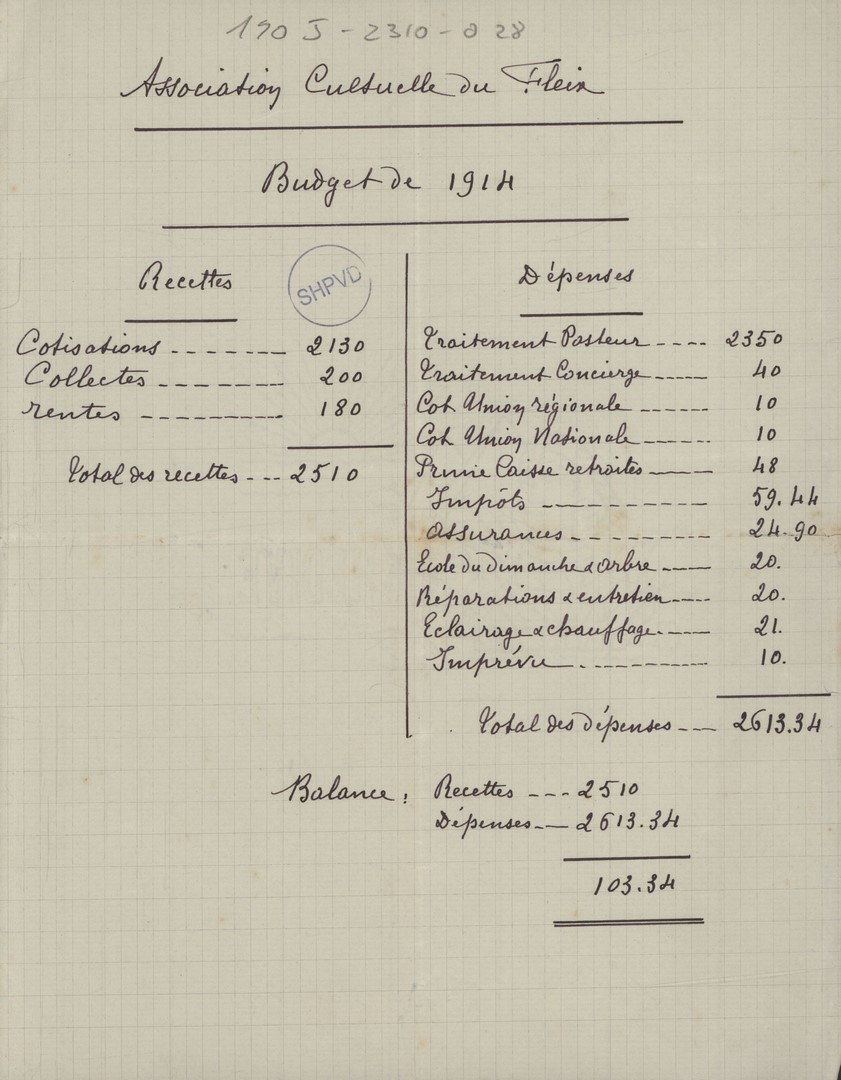 190 J - 2310 - a 28
Association Cultuelle du Fleix
Budget de 1914
Recettes
SHPVD
Cotisations 2130
Collectes 200
rentes 180
Total des recettes 2510
Dépenses
Traitement Pasteur 2350
Traitement Concierge 40
Cot Union régionale 10
Cot Union Nationale 10
Prime Caisse retraites 48
Impôts 59.44
Assurances 24.90
Ecole du Dimanche & arbre 20.
Réparations & entretien 20.
Eclairage & chauffage 21.
Imprévu 10.
Total des dépenses 2613.34
Balance : Recettes 2510
Dépenses 2613.34
103.34